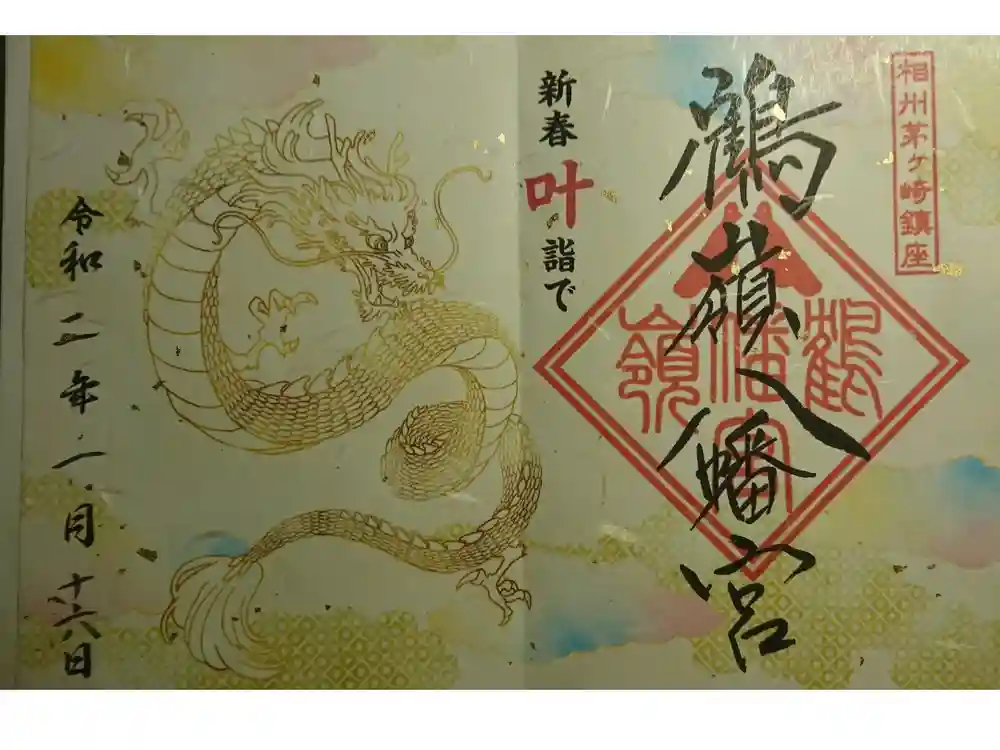 相州茅ヶ崎鎮座
鶴嶺八幡宮
鶴
八幡宮
嶺
新春叶詣で
令和二年一月十六日